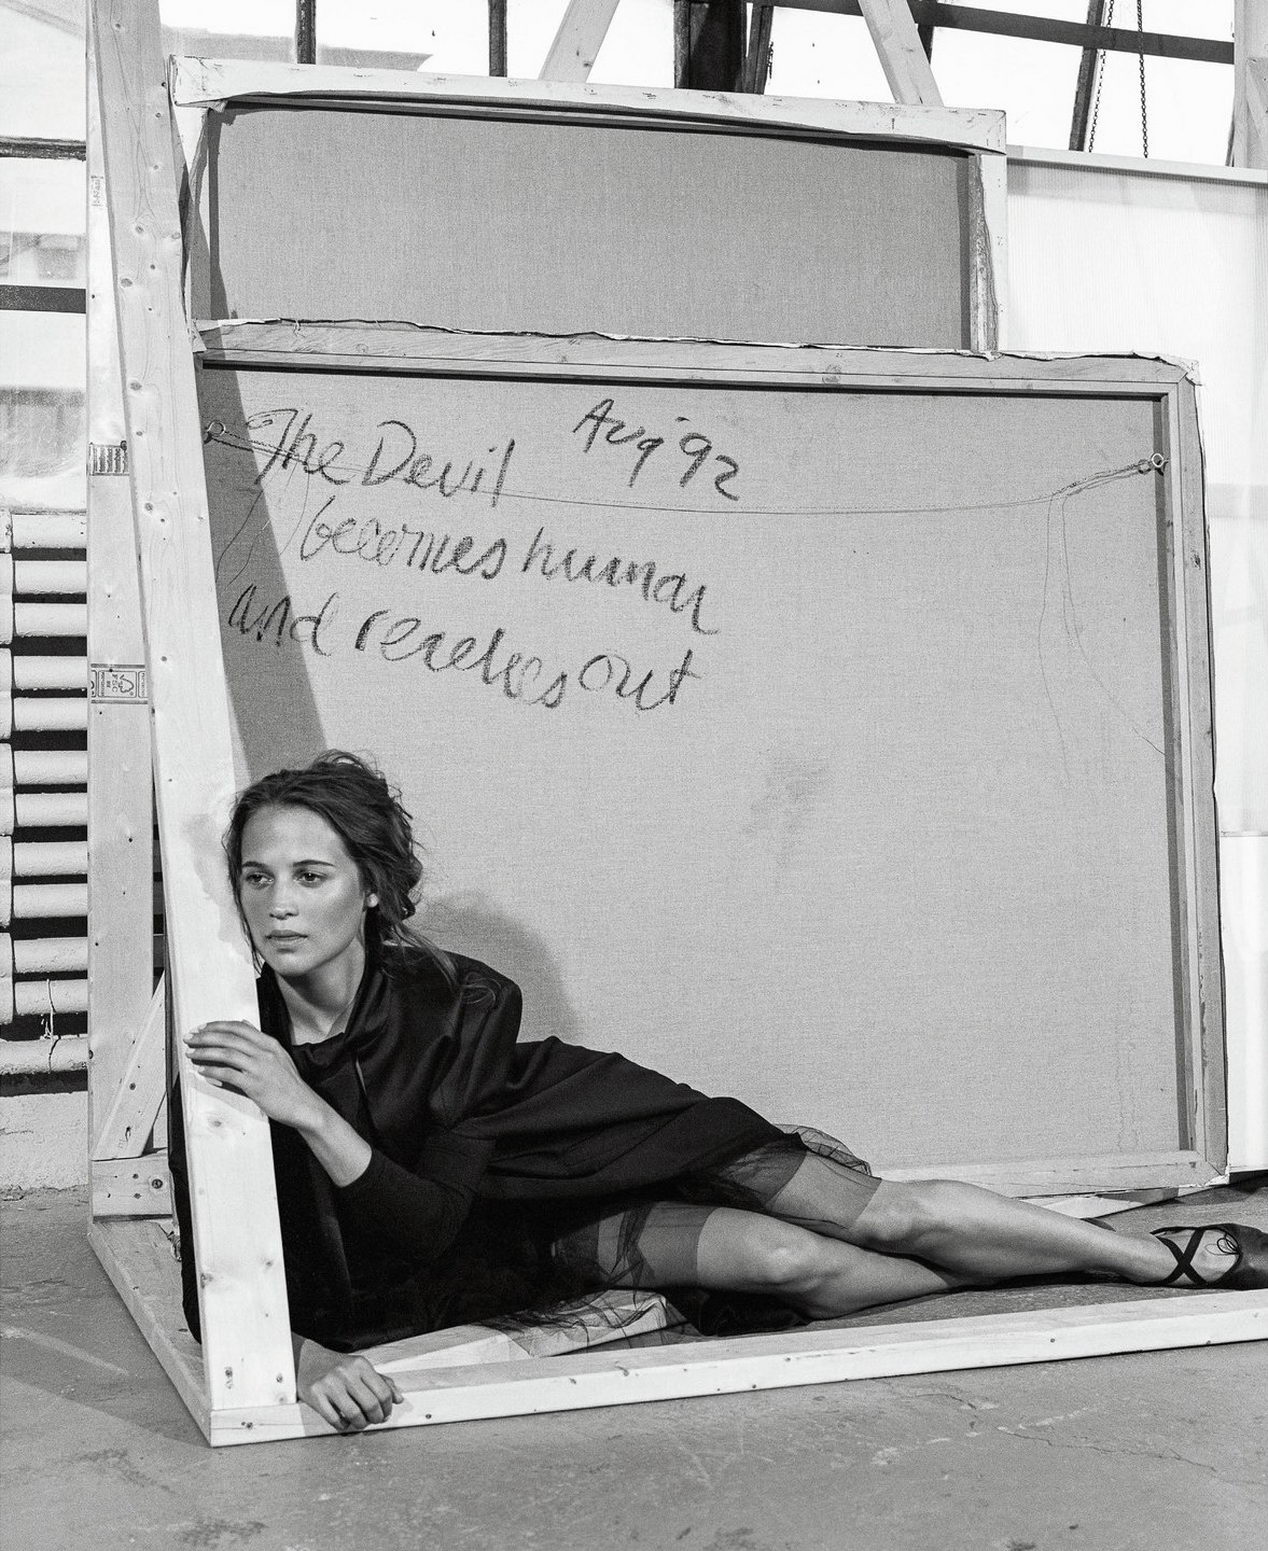 The Devil Aug '92
becomes human
and reaches out